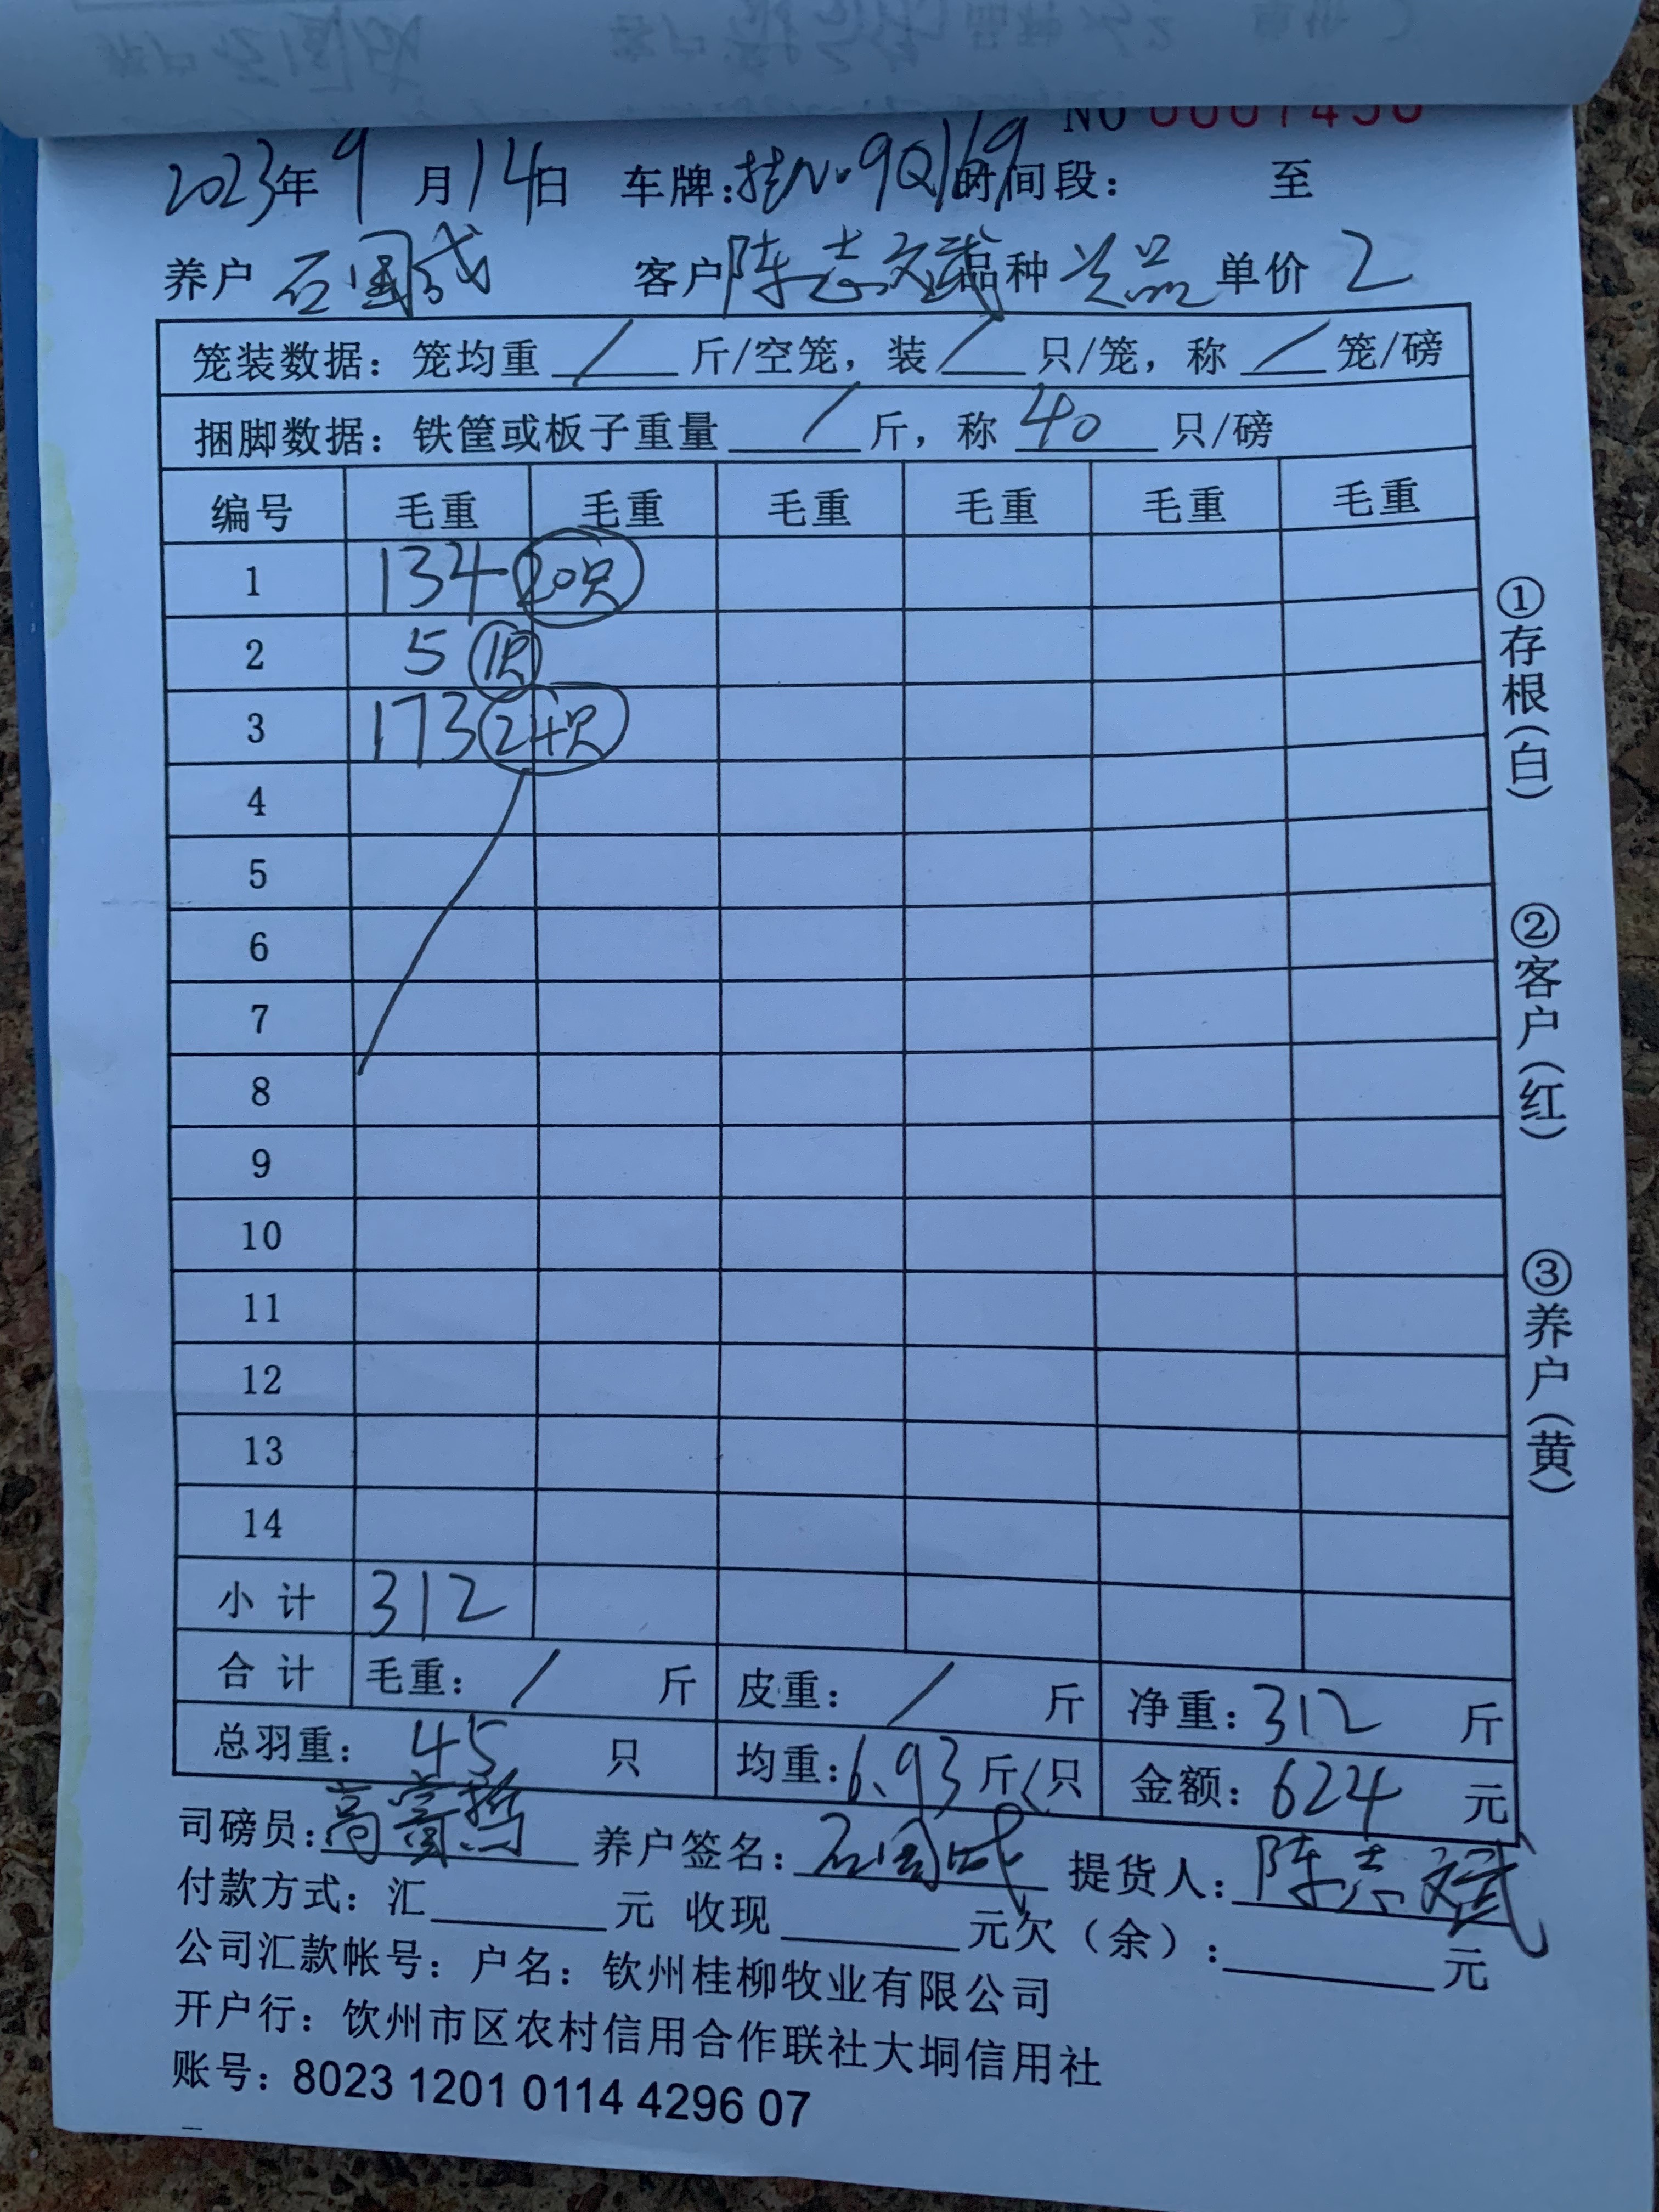 2023年9月14日 车牌:桂N·9Q169时间段: 至
养户 石国成 客户陈志文斌品种 次品 单价 2
笼装数据:笼均重 / 斤/空笼,装 / 只/笼,称 / 笼/磅
捆脚数据:铁筐或板子重量 / 斤,称 40 只/磅
编号 毛重 毛重 毛重 毛重 毛重 毛重
1 134 20只
2 5 1只
3 173 24只
4
5
6
7
8
9
10
11
12
13
14
小 计 312
合 计 毛重: / 斤 皮重: / 斤 净重:312 斤
总羽重: 45 只 均重:6.93斤/只 金额:624 元
司磅员: 养户签名:石国成 提货人:陈志文斌
付款方式:汇 元 收现 元欠(余): 元
公司汇款帐号:户名:钦州桂柳牧业有限公司
开户行:钦州市区农村信用合作联社大垌信用社
账号:8023 1201 0114 4296 07
①存根(白)
②客户(红)
③养户(黄)